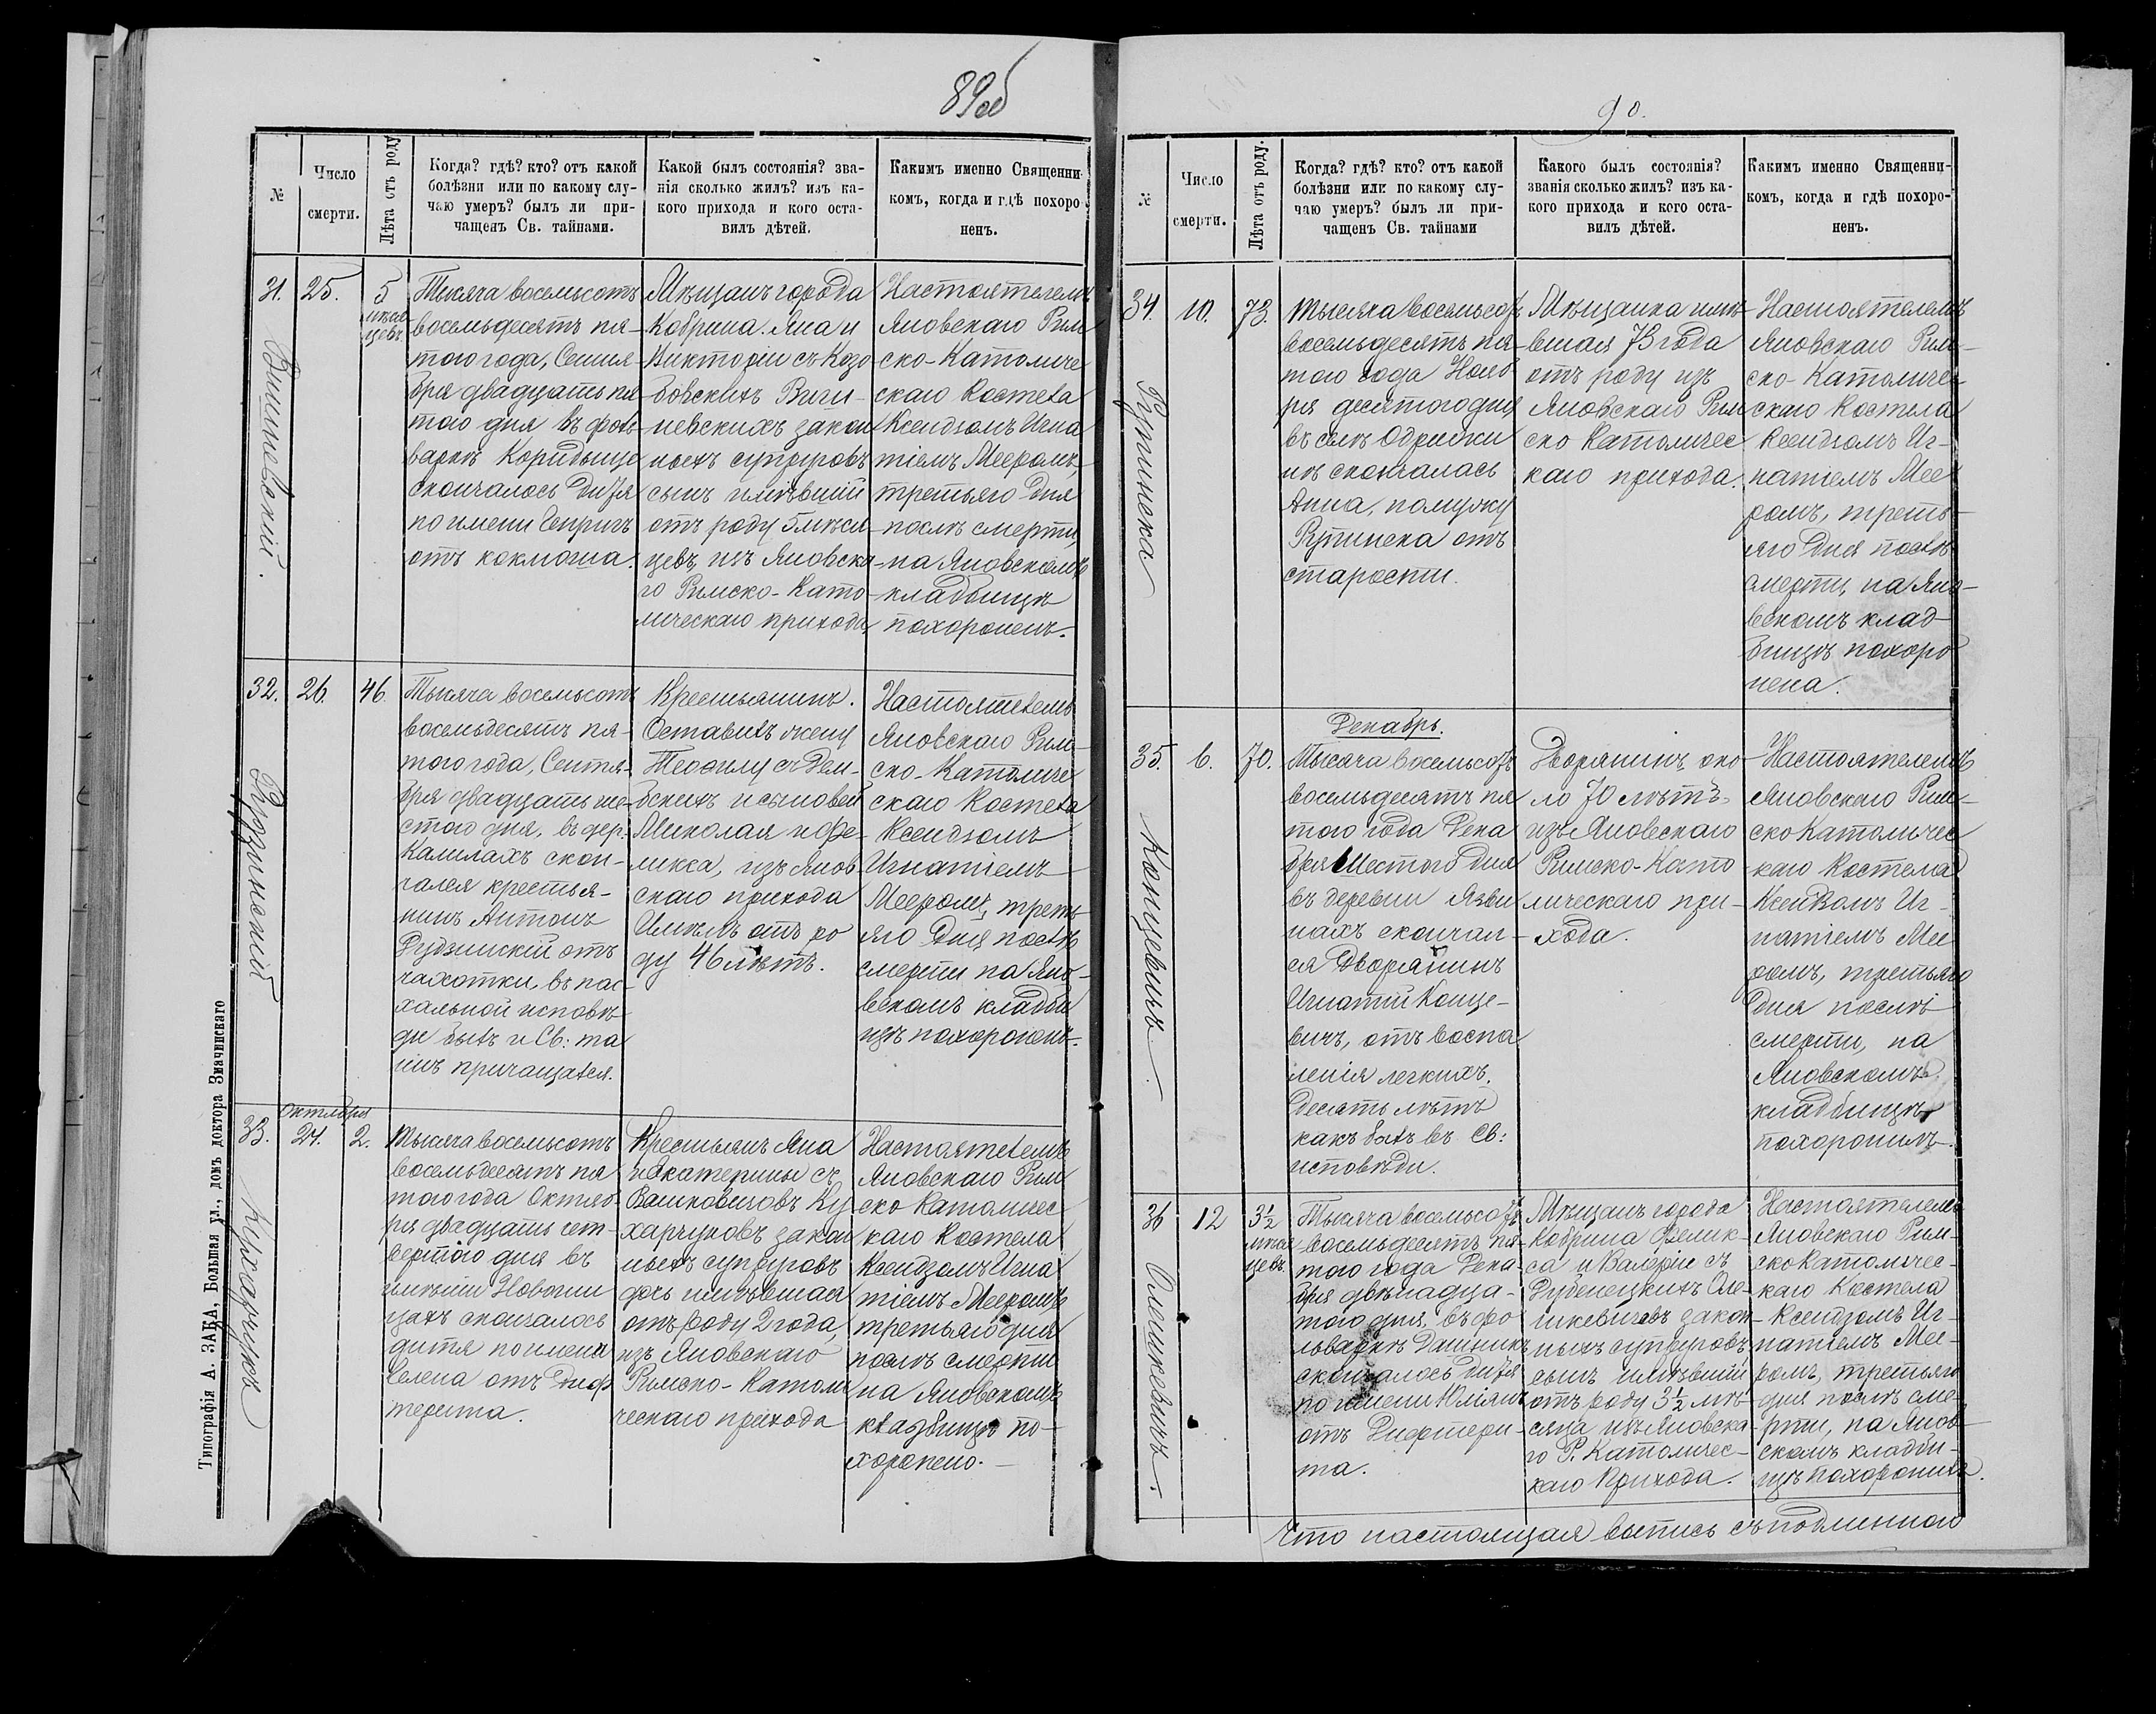 89об
№
Число
смерти.
Лѣта отъ роду
Когда? гдѣ? кто? отъ какой
болѣзни или по какому слу-
чаю умеръ? былъ ли при-
чащенъ Св. тайнами.
Какой былъ состоянія? зва-
нія сколько жилъ? изъ ка-
кого прихода и кого оста-
вилъ дѣтей.
Какимъ именно Священни-
комъ, когда и гдѣ похоро
ненъ.
31.
Вишневский.
25.
5
мѣся
цевъ
Тысяча восемьсотъ
восемьдесятъ пя-
того года, Сентя
бря двадцать пя
того дня въ фоль
варкѣ
скончалось дитя
по имени Генрихъ
отъ коклюша.
Мѣщанъ города
Кобрина. Яна и
Викторіи съ Козо
бовскихъ Виш-
невскихъ закон
ныхъ супруговъ
сынъ имѣвшій
отъ роду 5 мѣся
цевъ, изъ Яновска
го Римско-Като
лическаго прихода
Настоятелемъ
Яновскаго Рим
ско-Католиче
скаго Костела
Ксендзомъ Игна
тіемъ Мееромъ,
третьяго дня
послѣ смерти,
на Яновскомъ
кладбищѣ
похороненъ.
32.
Рудзинский
26.
46.
Тысяча восемьсотъ
восемьдесятъ пя-
того года, Сентя-
бря двадцать ше-
стого дня, въ дер.
Калилахъ скон-
чался крестья-
нинъ Антонъ
Рудзинскій отъ
чахотки, въ пас-
хальной исповѣ-
ди былъ и Св: та
инъ причащался.
Крестьянинъ.
Оставилъ жену
Теофилу съ Дем-
бскихъ и сыновей
Миколая и Фе-
ликса, изъ Янов
скаго прихода
Имѣлъ отъ ро
ду 46 лѣтъ.
Настоятелемъ
Яновскаго Рим-
ско-Католиче
скаго Костела
Ксендзомъ
Игнатіемъ
Мееромъ, треть
яго дня послѣ
смерти на Яно-
вскомъ кладби
щѣ похороненъ.
33.
Кухарчуковъ
Октября
24.
2.
Тысяча восемьсотъ
восемьдесятъ пя
того года Октяб-
ря двадцать чет-
вертого дня въ
имѣніи
скончалось
дитя по имени
Елена отъ Диф
терита.
Крестьянъ Яна
и Екатерины съ
Вашковичовъ Ку
харчуковъ закон
ныхъ супруговъ
дочь имѣвшая
отъ роду 2 года,
изъ Яновскаго
Римско-Католи
ческаго прихода
Настоятелемъ
Яновскаго Рим
ско Католичес-
каго Костела
Ксендзомъ Игна
тіемъ Мееромъ
третьяго дня
послѣ смерти
на Яновскомъ
кладбищѣ по-
хоронено.
Типографія А. ЗАКА, Большая ул., домъ доктора Змачинскаго
90.
№
Число
смерти.
Лѣта отъ роду.
Когда? гдѣ? кто? отъ какой
болѣзни или по какому слу-
чаю умеръ? былъ ли при-
чащенъ Св. тайнами
Какого былъ состоянія?
званія сколько жилъ? изъ ка-
кого прихода и кого оста-
вилъ дѣтей.
Какимъ именно Священни-
комъ, когда и гдѣ похоро-
ненъ.
34.
Рупинска
10.
73.
Тысяча восемьсотъ
восемьдесятъ пя-
того года Нояб
ря десятого дня
въ селѣ Одрижи
нѣ скончалась
Анна, по мужу
Рупинска отъ
старости.
Мѣщанка имѣ
вшая 73 года
отъ роду изъ
Яновскаго Рим
ско Католичес
каго прихода.
Настоятелемъ
Яновскаго Рим-
ско-Католичес
скаго Костела
Ксендзомъ Иг-
натіемъ Мее
ромъ, треть-
яго дня послѣ
смерти, на Яно-
вскомъ клад-
бищѣ похоро
нена.
35.
Концевичъ
6.
70.
Декабрь.
Тысяча восемьсотъ
восемьдесятъ пя
того года Дека
бря Шестого дня
въ деревни Ляви
нахъ скончал-
ся Дворянинъ
Игнатій Конце-
вичъ, отъ воспа
ленія легкихъ.
Десять лѣтъ
какъ былъ въ Св:
исповѣди.
Дворянинъ око
ло 70 лѣтъ.
изъ Яновскаго
Римско-Като
лическаго при-
хода.
Настоятелемъ
Яновскаго Рим-
ско Католичес
каго Костела
Ксендзомъ Иг-
натіемъ Мее
ромъ, третьяго
дня послѣ
смерти, на
Яновскомъ
кладбищѣ
похороненъ.
36
Олешкевичъ.
12
3½
мѣся
цевъ
Тысяча восемьсотъ
восемьдесятъ пя-
того года Дека-
бря двѣнадца-
того дня, въ фо
льваркѣ
скончалось дитя
по имени Юліянъ
отъ Дифтери-
та.
Мѣщанъ города
Кобрина Фелик-
са и Валеріи съ
Рубенецкихъ Оле-
шкевичовъ закон
ныхъ супруговъ
сынъ имѣвшій
отъ роду 3½ мѣ-
сяца изъ Яновска
го Р. Католичес-
каго Прихода.
Настоятелемъ
Яновскаго Рим-
ско Католичес-
каго Костела
Ксендзомъ Иг-
натіемъ Мее-
ромъ, третьяго
дня послѣ сме-
рти, на Янов-
скомъ кладби-
щѣ похороненъ.
Что настоящая выпись съ подлинною